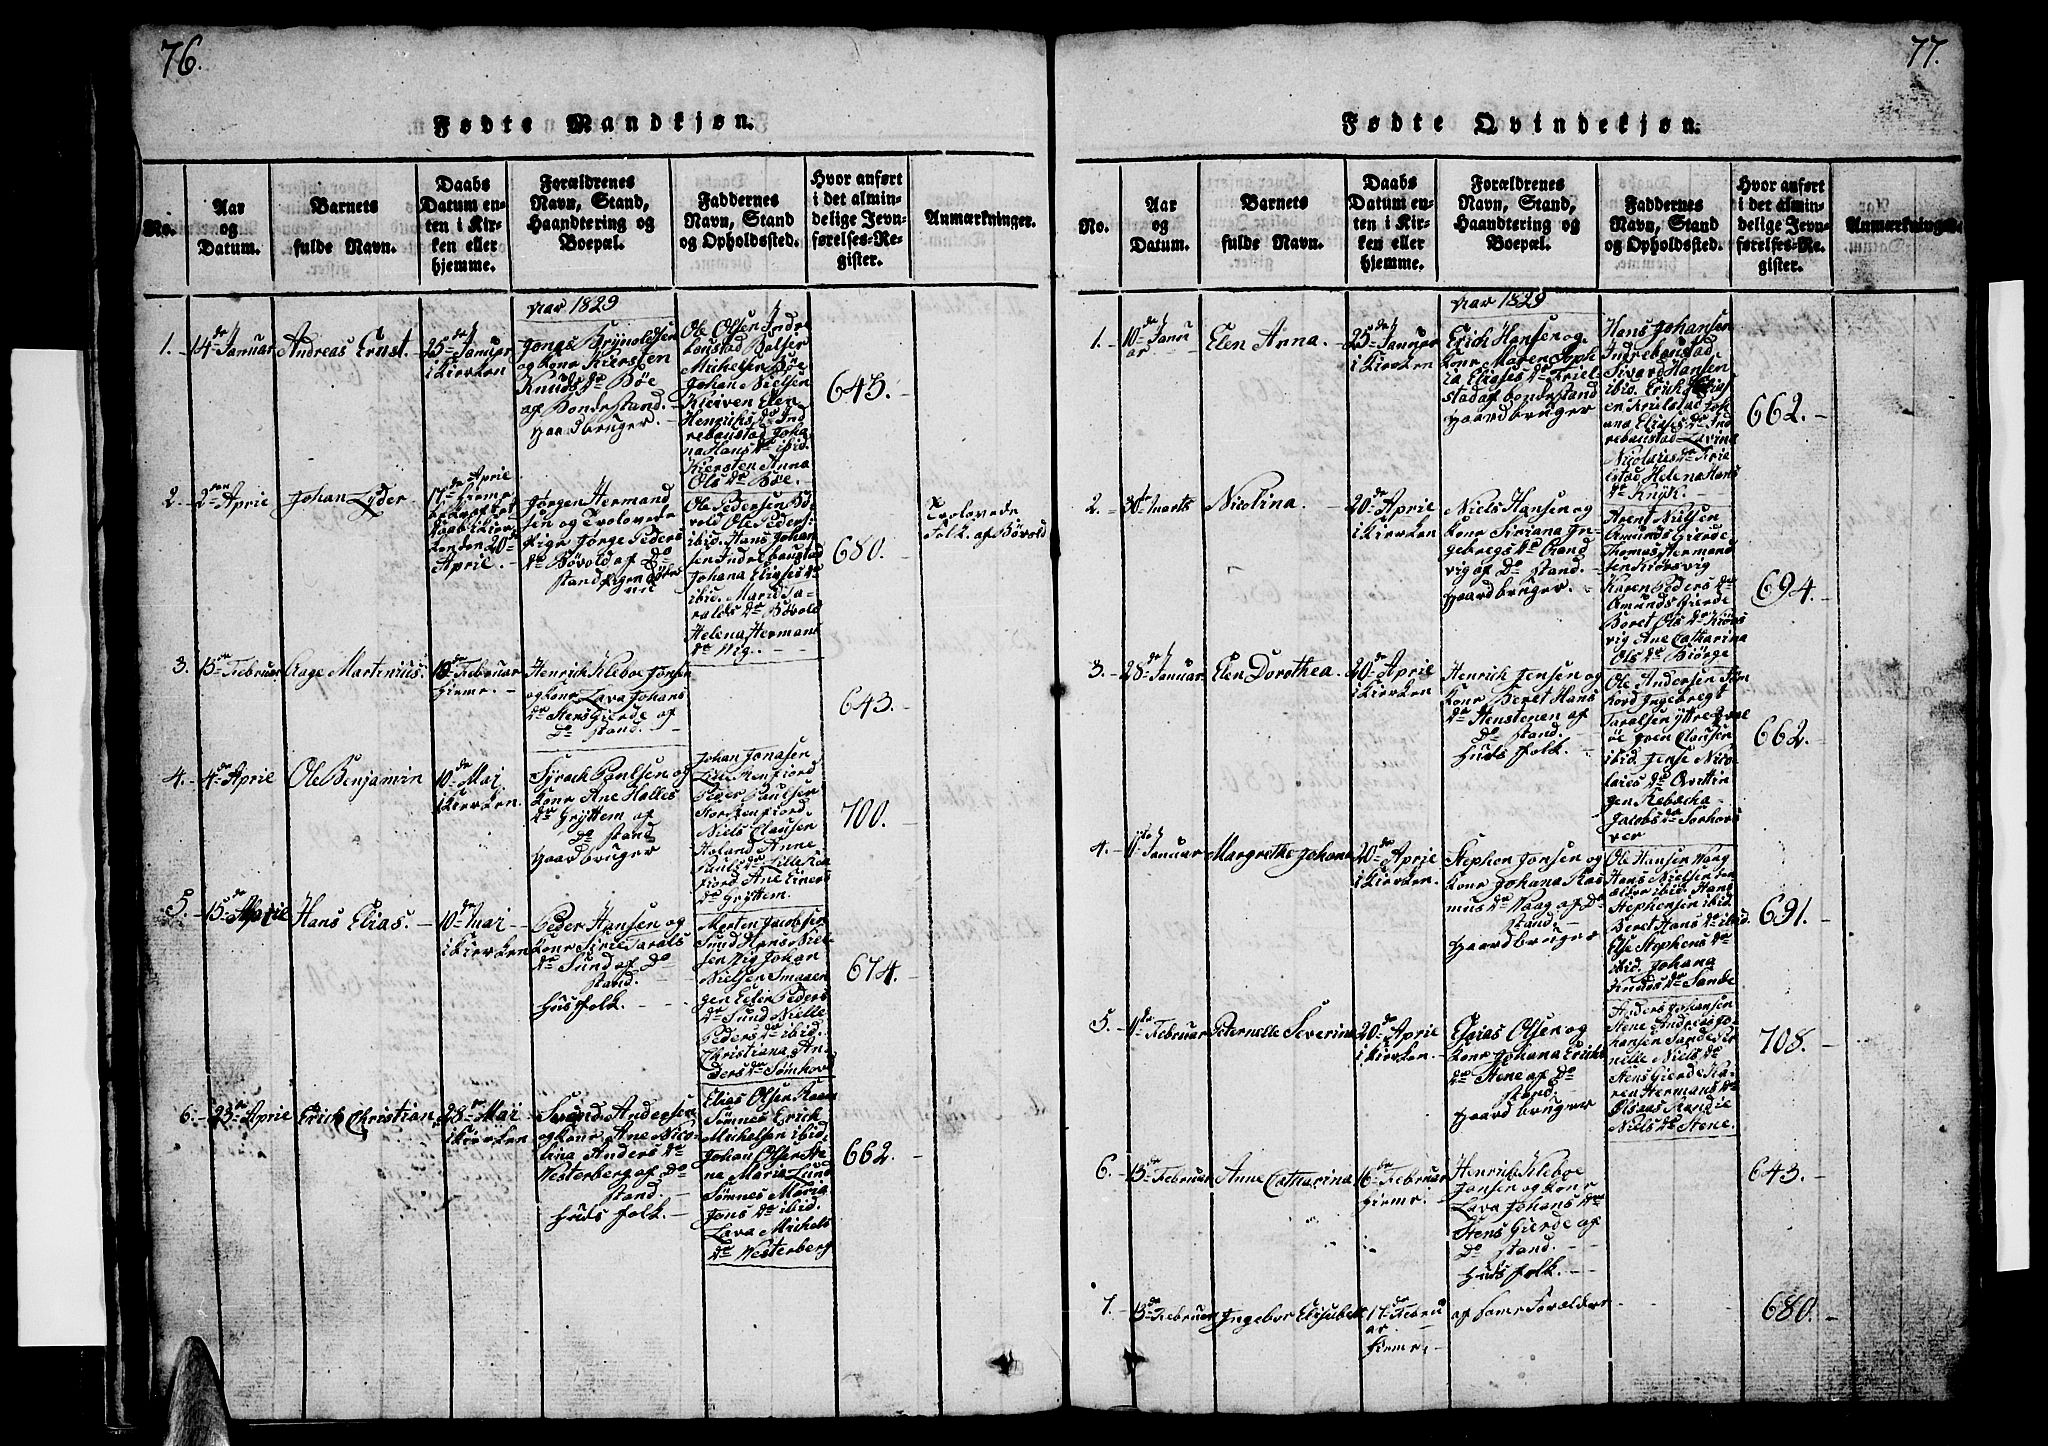 76.
Fødte Mandkjøn.
No.
Aar
og
Datum.
Barnets
fulde Navn.
Daabs
Datum en-
ten i Kir-
ken eller
hjemme.
Forældrenes
Navn, Stand,
Haandtering og
Boepæl.
Faddernes
Navn, Stand
og Opholdssted.
Hvor anført
i det almin-
delige Jevn-
førelses-Re-
gister.
Anmærkninger.
Aar 1829
1.
14de Januar
Andreas Ernst.
25de Januar
i Kirken
Jonas Brynoldsen
og Kone Kiersten
Knuds Dr Bøe
af Bondestand.
Gaardbruger.
Ole Olsen Indre
baustad
Michelsen Bøe
Johan Nielsen
Kleiven Elen
Henriks Dr Ind
rebaustad Joha
na Hans Dr ibid.
Kiersten Anna
Ols Dr Bøe.
643.
2.
2den Aprie
Johan Lyder
17de Aprie
hieme
April.
Jørgen Hermand
sen og Trolovede
Pige Peders
Dr Bøvold af Do
stand
Ole Pedersen Bø
vold Ole Peders.
ibid. Hans Johan
sen Indrebaustad
Johana Eliases Dr
ibid. Marit Ta-
ralds Dr Bøvold
Helena Hermans
Dr Vig.
680.
Trolovede
Folk af Bøvold
3.
15de Februar
Aage Martinius.
Februar
hieme.
Henrich Kleboe Jonsen
og Kone Lava Johans
Dr Stens Gierde af
Do stand.
643.
4.
4de Aprie
Ole Benjamin
10de Mai
i Kirken.
Sirach Paulsen og
Kone Ane Halles
Dr Gryttem af
Do stand
Gaardbruger
Johan Jonasen
Lille
Peder Paulsen
Niels Clausen
Holand Anne
Pauls Dr Lille Kor
fiord Ane Einers
Dr Gryttem.
700.
5.
15de Aprie
Hans Elias.
10de Mai
i Kirken
Peder Hansen og
Kone Siri Tarals
Dr Sund af Do
stand.
Husfolk.
Morten Jacobsen
Sund Hans Niel-
sen Vig Johan
Nielsen Smaaen
gen Elen Peders
Dr Sund Nille
Peders Dr ibid.
Christiana An-
ders Dr Sømhov
674.
6.
23de Aprie
Erich Christian
28de Mai
i Kirken
Svend Andersen
og Kone Ane Nico-
lina Anders Dr
Westerberg af Do
stand.
Huds folk.
Elias Olsen
Sømnes Erich
Michelsen ibid.
Johan Olsen
na Maria Lund
Sømnes Maria
Jons Dr ibid.
Lava Michels
Dr Westerberg
662.
77.
Fødte Qvindekjøn.
No.
Aar
og
Datum.
Barnets
fulde Navn.
Daabs
Datum en-
ten i Kir-
ken eller
hjemme.
Forældrenes
Navn, Stand,
Haandtering og
Boepæl.
Faddernes
Navn, Stand
og Opholdssted.
Hvor anført
i det almin-
delige Jevn-
førelses-Re-
gister.
Anmærkninger.
Aar 1829
1.
10de Janu
ar
Elen Anna.
25de Januar
i Kirken
Erich Hansen og
Kone Maren Soph
ia Eliases Dr Kriel-
stad af bondestand
Gaardbruger
Hans Johansen
Indrebaustad
Sivard Hansen
ibid. Erich
en Krilstad Joh-
ana Eliases Dr Ind
rebaustad Lavina
Nicolaies Dr Krie
lstad Helena Hans
Dr Knyk.
662.
2.
30te Marts
Nicolina.
20de Aprie
i Kirken
Niels Hansen og
Kone Siriana In-
gebregs Dr Brand
vig af Do stand.
Gaardbruger.
Arent Nielsen
Amunds Gierde
Thomas Hermand
sen Kiørsvig
Karen Peders Dr
Amunds Gierde
Beret Ols Dr Kiørs
vig Ane Catharina
Ols Dr Biørge
694.
3.
28de Januar
Elen Dorothea.
20de Aprie
i Kirken
Henrich Jensen og
Kone Beret Hans
Dr Stenstenen af
Do stand.
Huds folk.
Ole Andersen
Ingebregt
Taralsen Yttre
øe Clausen
ibid. Jense Nico
laies Dr Qvittin
gen Rebecha
Jacobs Dr
ver
662.
4.
11te Januar
Margrethe Johana
20de Aprie
i Kirken.
Stephen Jonsen og
Kone Johana Ras
mus Dr Vaag af Do
stand.
Gaardbruger
Ole Hansen Vaag
Hans Nielsen
ibid. Hans
Stephensen ibid.
Beret Hans Dr ibid.
Else Stephens Dr
ibid. Johana
Knuds Dr Sande
691.
5.
11te Februar
Peternelle Severina
20de Aprie
i Kirken.
Esaias Olsen og
Kone Johana Erichs
Dr Stene af Do
stand.
Gaardbruger
Anders Johansen
Stene Andreas Jo-
hansen Sande Per
nille Niels Dr
Stens Gierde Ka-
ren Hermans Dr
Olsaas Randie
Niels Dr Stene.
708.
6.
15de Februar
Anne Catharina
16de Februar
hieme.
Henrich Kleboe
Jonsen og Kone
Lava Johans Dr
Stens Gierde af
Do stand.
Huds folk.
643.
7.
15de Februar
Ingebor Elisabet
17de Febru
ar
hieme.
af Same Forældre
680.